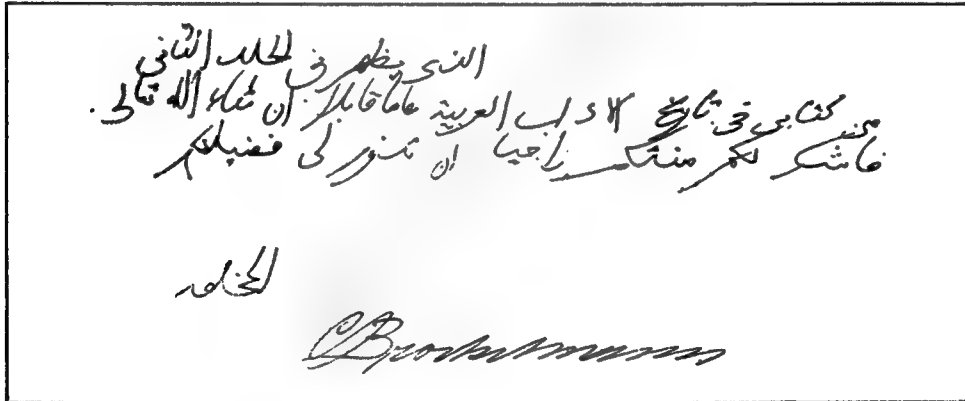 الذى يظهر فى المجلد الثانى
من كتابى فى تاريخ الاداب العربية عاما قابلا ان شاء الله تعالى.
فاشكر لكم منتكم راجيا ان تدوم لى فضيلتكم
المخلص
C. Brockelmann